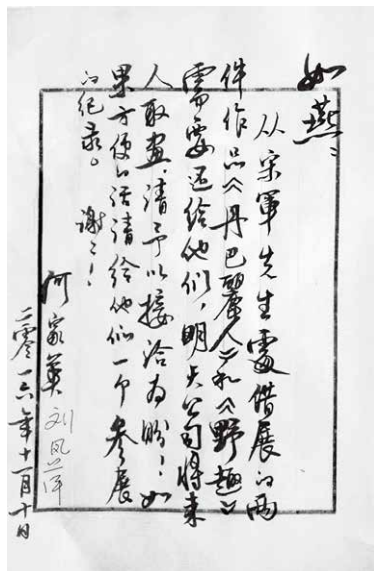 如燕：
从宋軍先生處借展的两
件作品《丹巴麗人》和《野趣》
需要还给他们，明天公司将来
人取画，请予以接洽为盼！如
果方便的话请给他们一个参展
的纪录。谢谢！
何家英 刘凤萍
二零一六年十一月十日